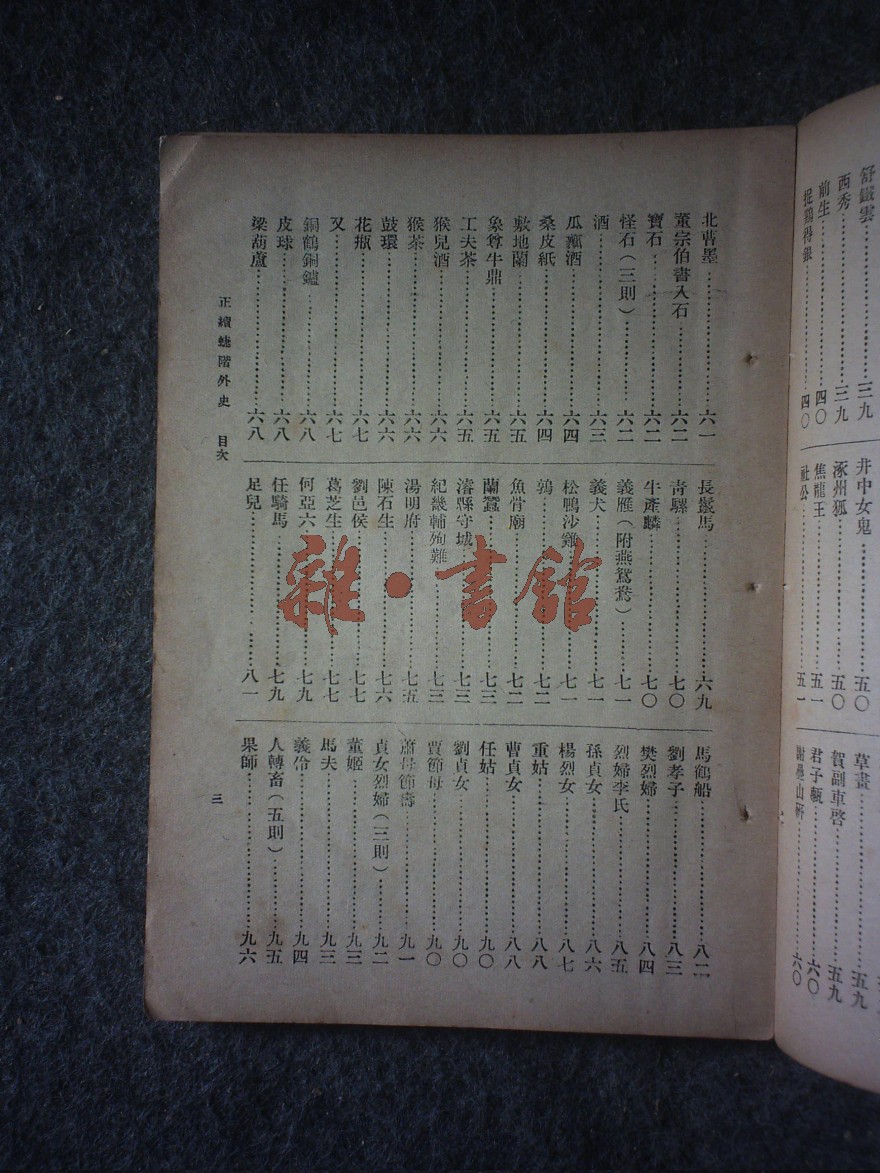 舒鐵雲…………三九
西秀…………三九
前生…………四〇
捉鶴得銀…………四〇
井中女鬼…………五〇
涿州狐…………五〇
焦龍王…………五一
社公…………五一
草書…………五九
賀副車啓…………五九
君子甎…………六〇
謝疊山研…………六〇
北曹墨…………六一
董宗伯書入石…………六二
寶石…………六二
怪石（三則）…………六二
酒…………六三
瓜瓤酒…………六四
桑皮紙…………六四
敷地蘭…………六五
象尊牛鼎…………六五
工夫茶…………六五
猴兒酒…………六六
猴茶…………六六
鼓環…………六六
花瓶…………六七
又…………六七
銅鶴銅鑪…………六八
皮球…………六八
梁葫蘆…………六八
長鬛馬…………六九
青騾…………七〇
牛產麟…………七〇
義雁（附燕鴛鴦）…………七一
義犬…………七一
松鴨沙雞…………七一
鶉…………七二
魚骨廟…………七二
蘭蠶…………七三
濬縣守城…………七三
紀畿輔殉難…………七三
湯明府…………七五
陳石生…………七六
劉邑侯…………七七
葛芝生…………七七
何亞六…………七九
任騎馬…………七九
足兒…………八一
馬鶴船…………八二
劉孝子…………八三
樊烈婦…………八四
烈婦李氏…………八五
孫貞女…………八六
楊烈女…………八七
重姑…………八八
曹貞女…………八八
任姑…………九〇
劉貞女…………九〇
賈節母…………九〇
蕭母節壽…………九一
貞女烈婦（三則）…………九二
董姬…………九三
馬夫…………九三
義伶…………九四
人轉畜（五則）…………九五
果師…………九六
正續蜨階外史 目次
三
雜·書館